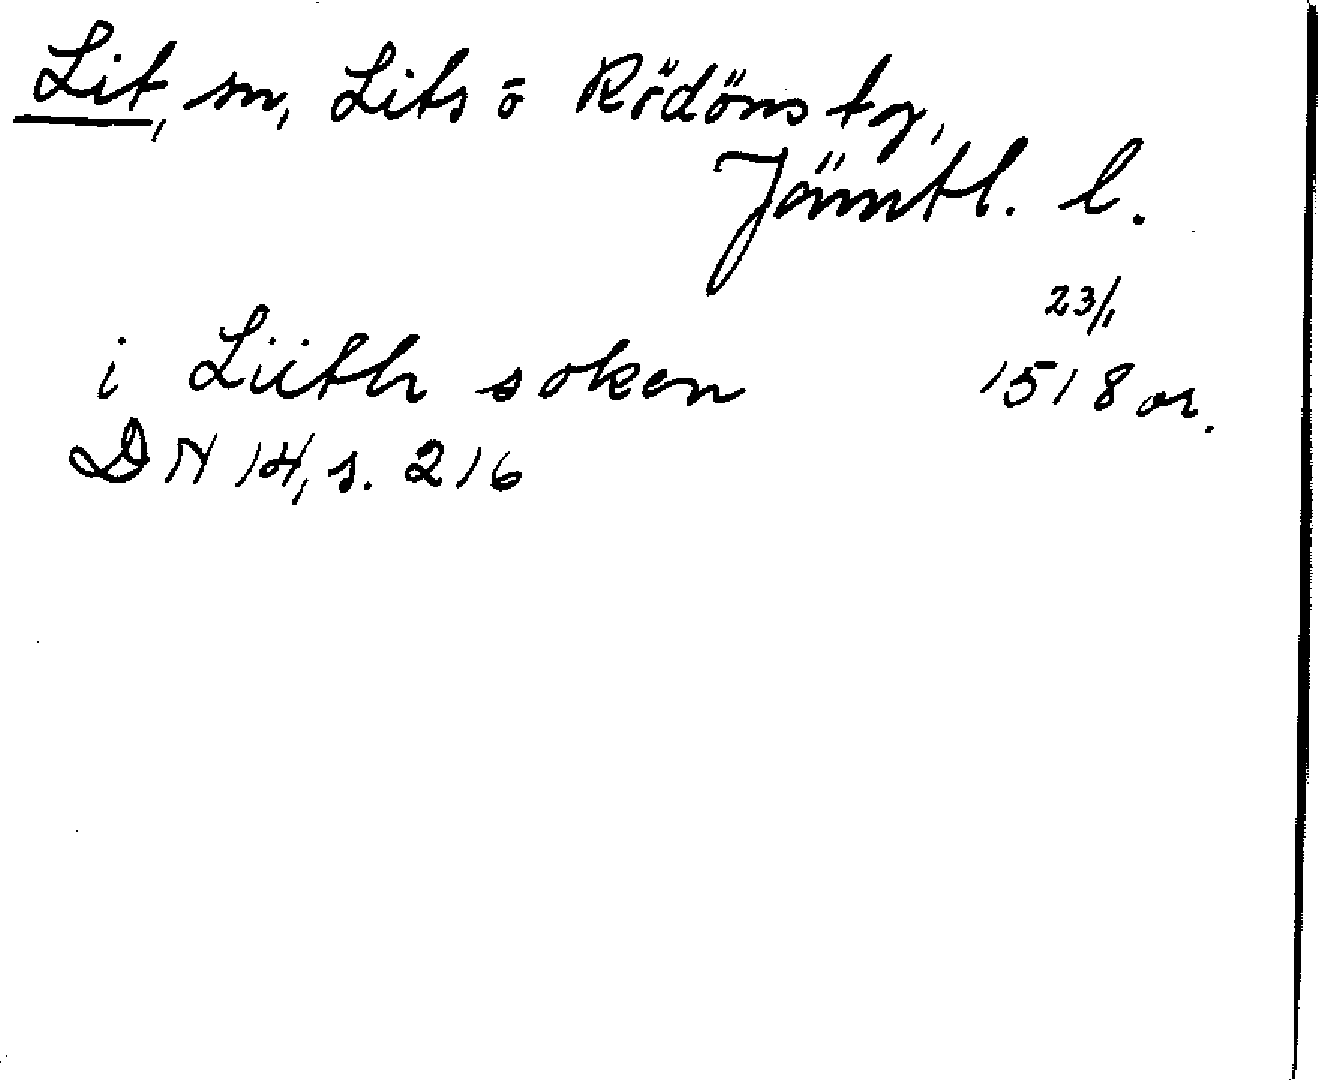 Lit, sn, Lits o Rödöns tg,
Jämtl. l.
23/1
i Liith soken 1518 or.
DN 14, s. 216